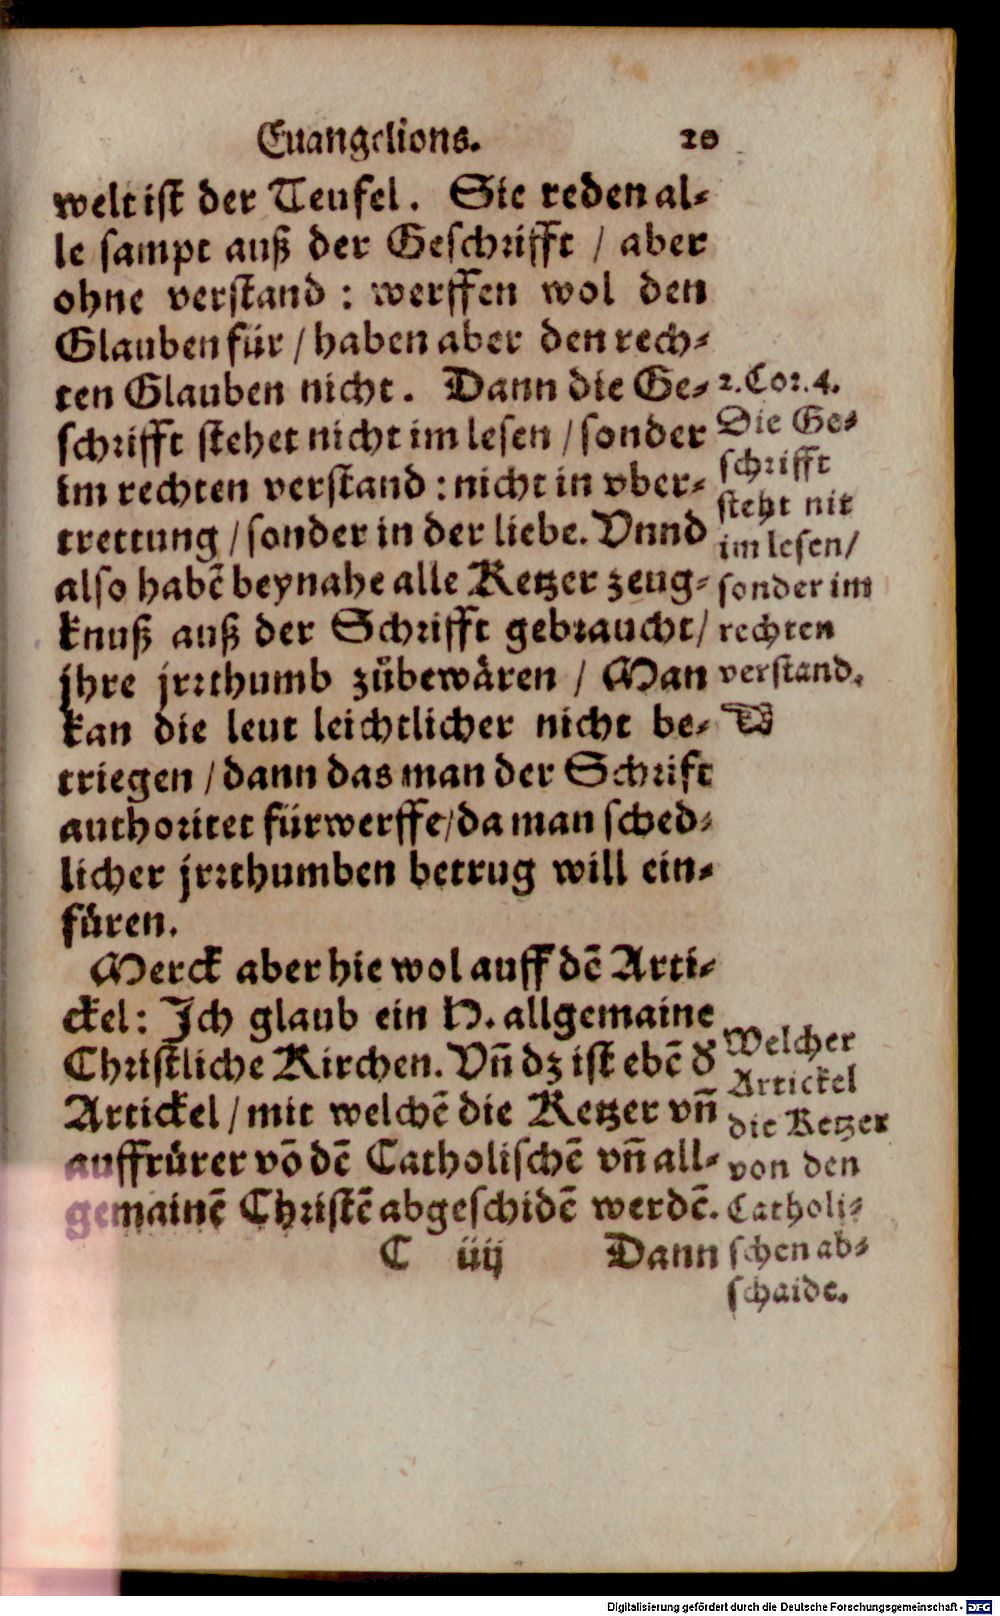 Euangelions. 20
welt ist der Teufel. Sie reden al-
le sampt auß der Geschrifft / aber
ohne verstand : werffen wol den
Glauben für / haben aber den rech-
ten Glauben nicht. Dann die Ge-
schrifft stehet nicht im lesen / sonder
im rechten verstand : nicht in vber-
trettung / sonder in der liebe. Vnnd
also habē beynahe alle Ketzer zeug-
knuß auß der Schrifft gebraucht /
jhre jrrthumb zůbewären / Man
kan die leut leichtlicher nicht be-
triegen / dann das man der Schrift
authoritet fürwerffe / da man sched-
licher jrrthumben betrug will ein-
füren.
Merck aber hie wol auff dē Arti-
ckel: Ich glaub ein H. allgemaine
Christliche Kirchen. Vñ dz ist ebē d'
Artickel / mit welchē die Ketzer vñ
auffrürer võ dē Catholischē vñ all-
gemainē Christē abgeschidē werdē.
C iiij Dann
2. Cor. 4.
Die Ge-
schrifft
steht nit
im lesen /
sonder im
rechten
verstand.
☜
Welcher
Artickel
die Ketzer
von den
Catholi-
schen ab-
schaide.
Digitalisierung gefördert durch die Deutsche Forschungsgemeinschaft - DFG